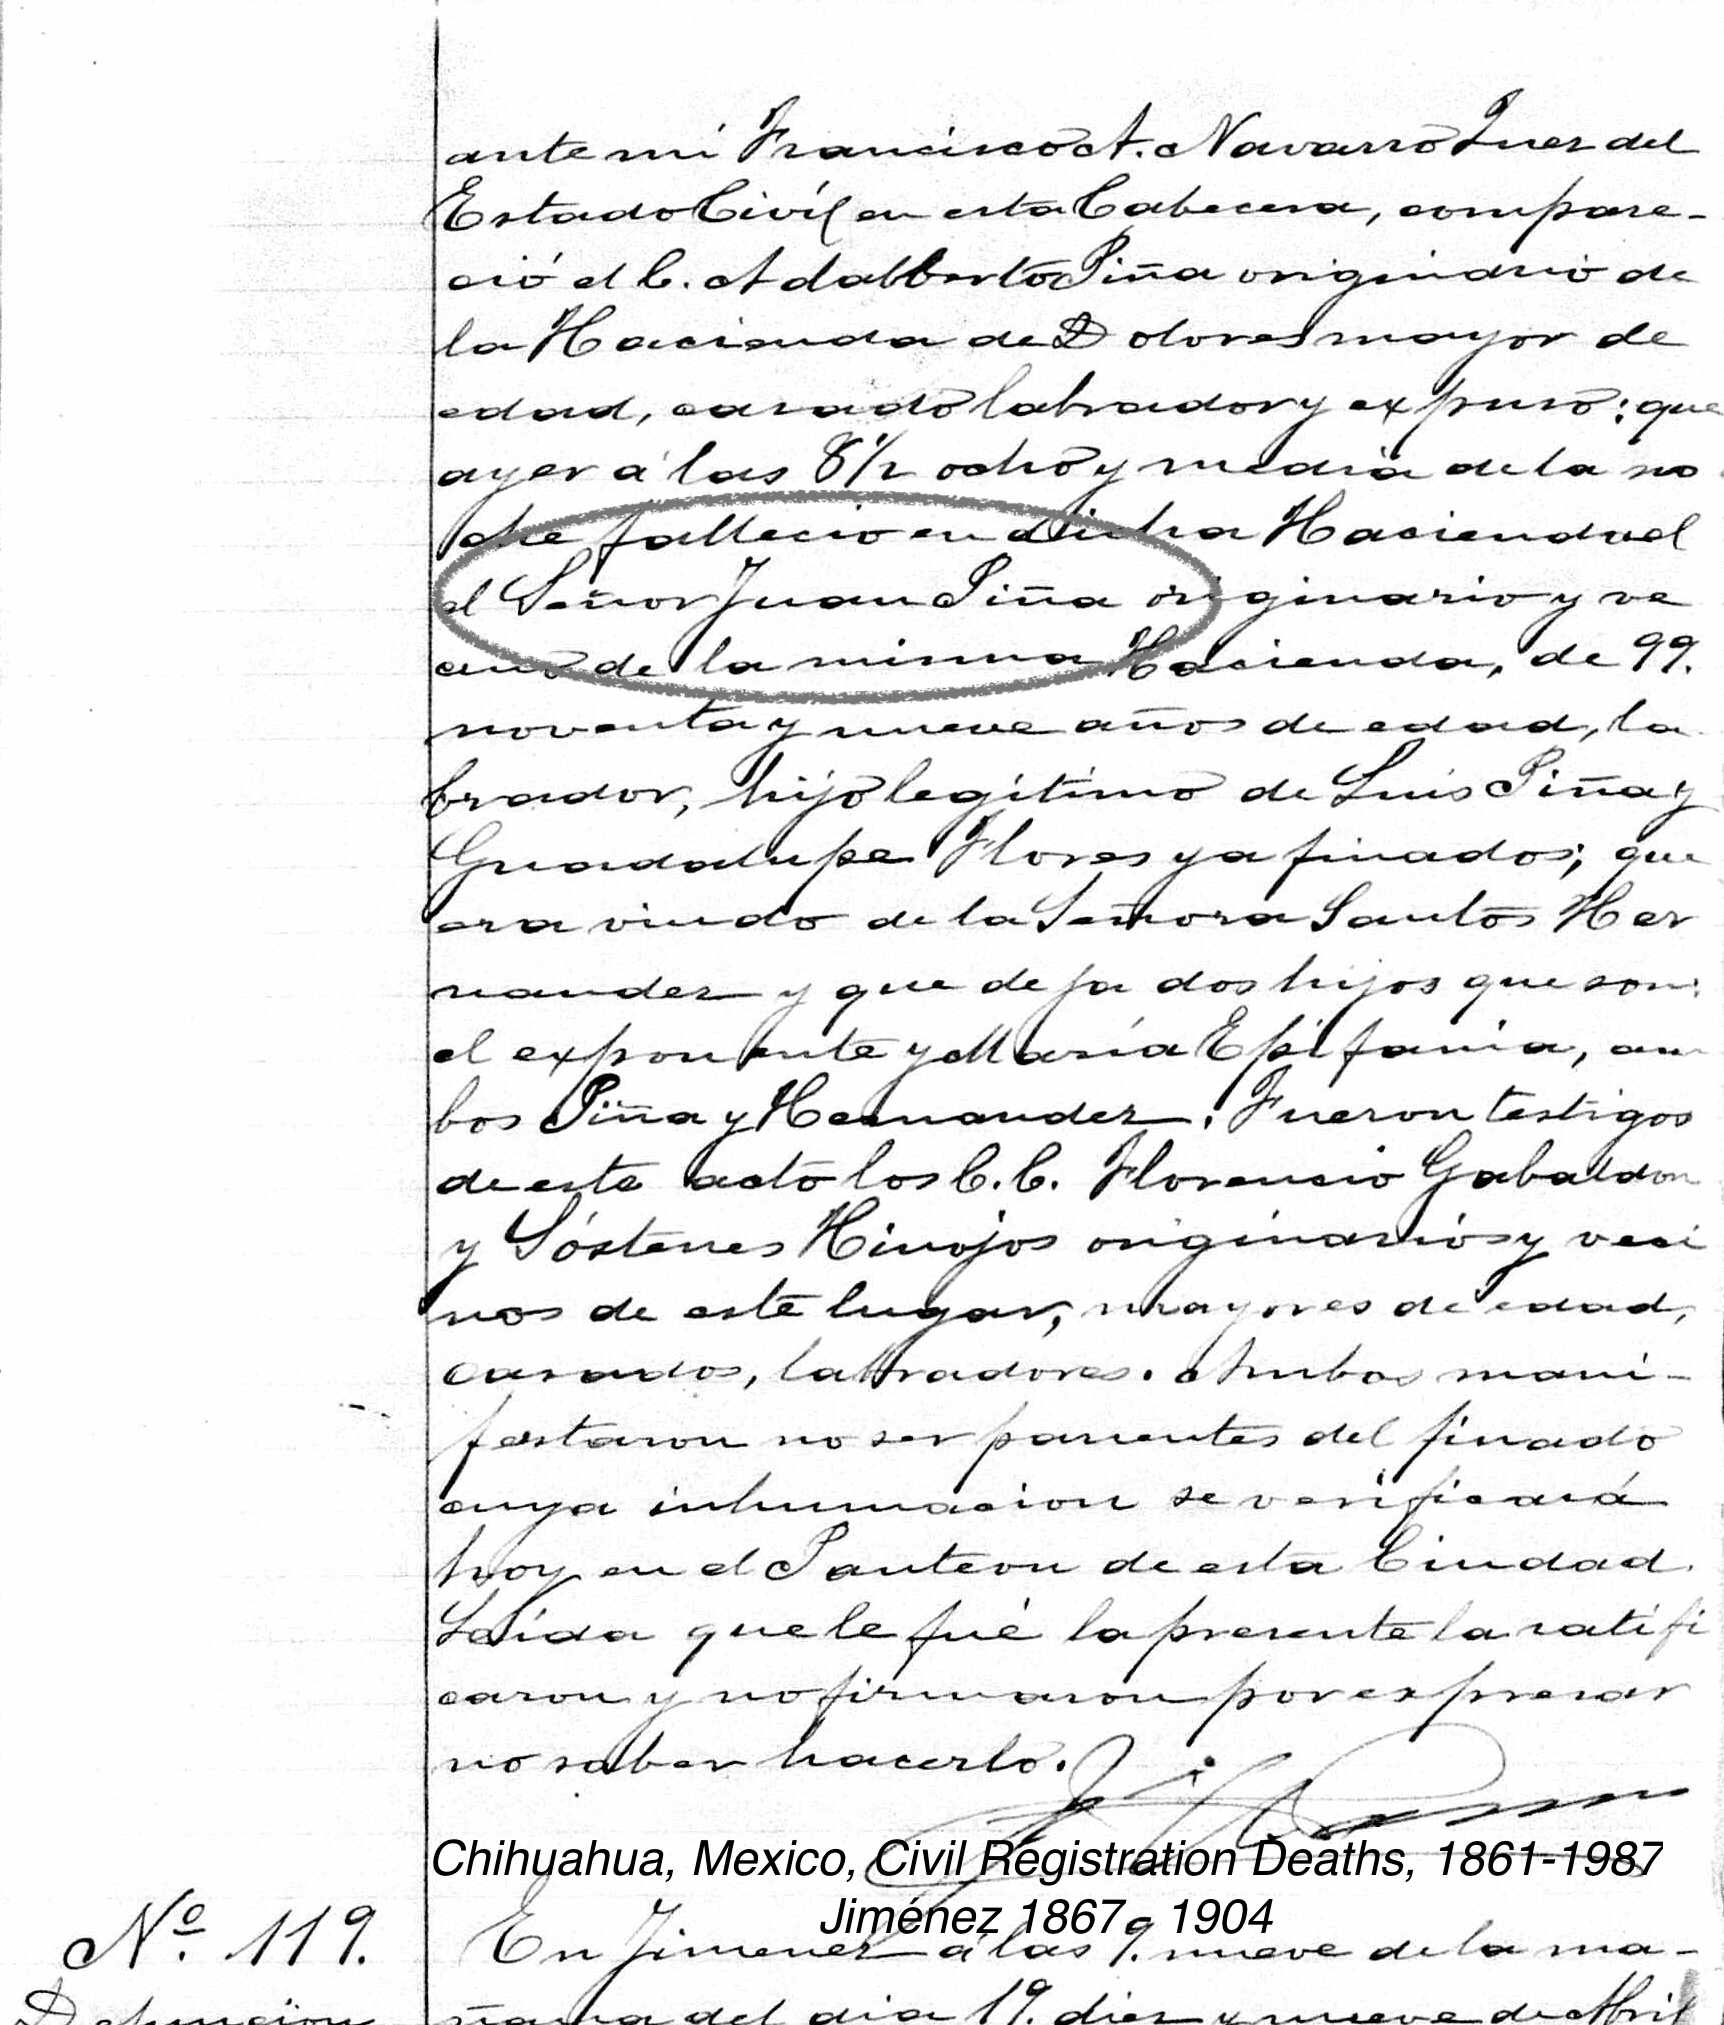 ante mí Francisco A. Navarro Juez del
Estado Civíl en esta Cabecera, compare-
ció el C. Adalberto Piña originario de
la Hacienda de Dolores mayor de
edad, casado labrador y expuso: que
ayer á las 8 1/2 ocho y media de la no
che fallecio en dicha Hacienda el
el Señor Juan Piña originario y ve
cino de la misma Hacienda, de 99.
noventa y nueve años de edad, la
brador, hijo legítimo de Luis Piña y
Guadalupe Flores ya finados; que
era viudo de la Señora Santos Her
nandez y que deja dos hijos que son:
el exponente y María Epifania, am
bos Piña y Hernandez. Fueron testigos
de este acto los C.C. Florencio Gabaldon
y Sóstenes Hinojos originarios y veci
nos de este lugar, mayores de edad,
casados, labradores. Ambos mani-
festaron no ser parientes del finado
cuya inhumacion se verificará
hoy en el Panteon de esta Ciudad.
Leída que le fué la presente la ratifi
caron y no firmaron por expresar
no saber hacerlo.
Chihuahua, Mexico, Civil Registration Deaths, 1861-1987
Jiménez 1867 - 1904
Nº. 119. En Jimenez a las 9. nueve de la ma-
Defuncion ñana del dia 19. diez y nueve de Abril